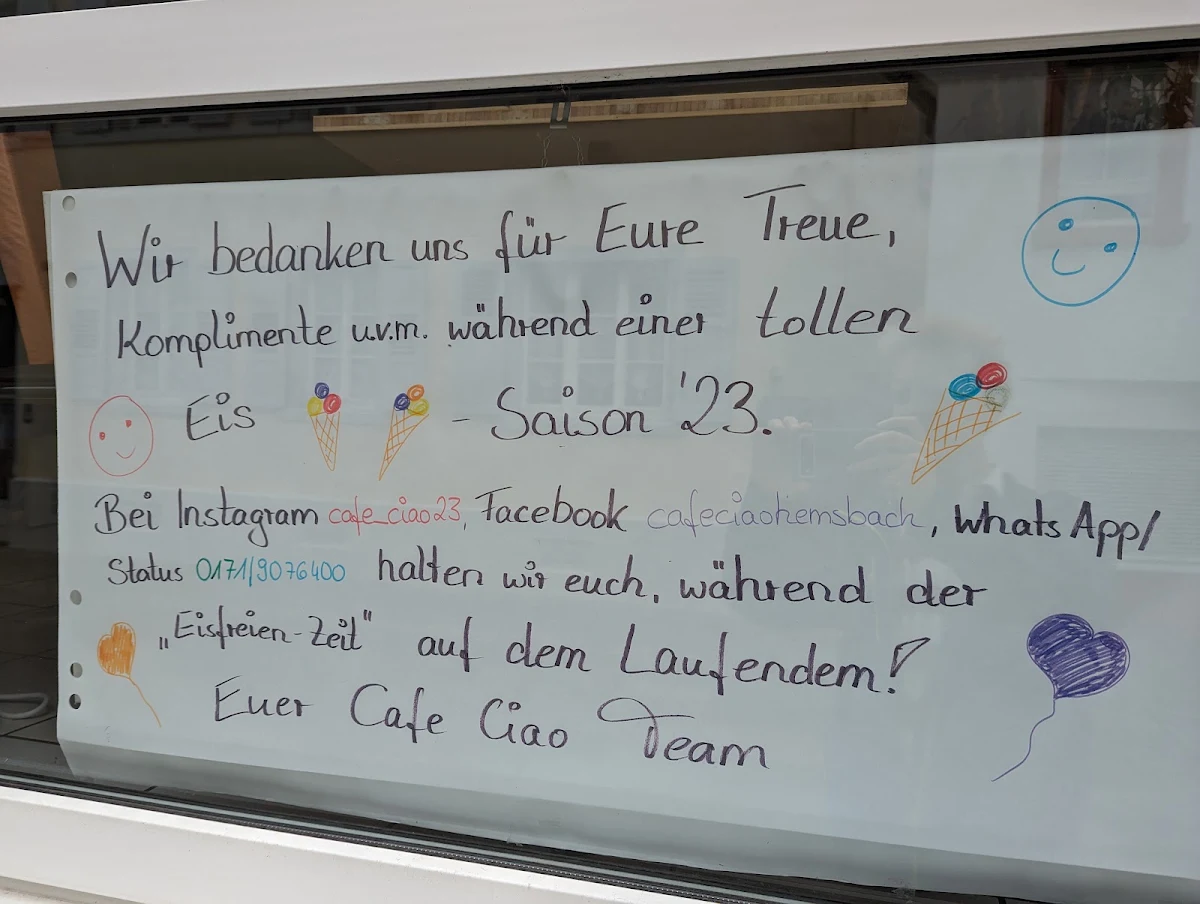 Wir bedanken uns für Eure Treue,
Komplimente u.v.m. während einer tollen
Eis - Saison '23.
Bei Instagram cafe_ciao23, Facebook cafeciaohemsbach, WhatsApp/
Status 0171/9076400 halten wir euch, während der
„Eisfreien-Zeit" auf dem Laufendem!
Euer Cafe Ciao Team